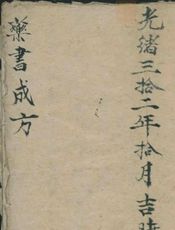 光緒三拾二年拾月吉時
藥書成方